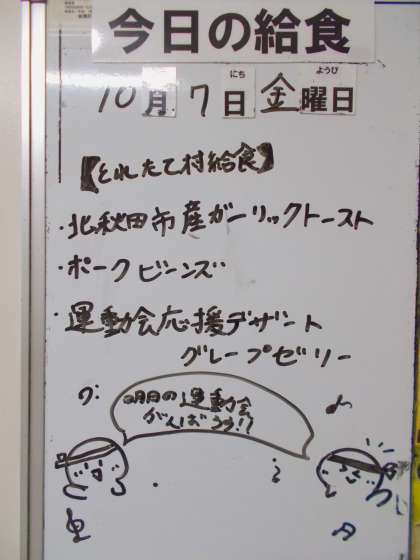 今日の給食
10月7日金曜日
にち ようび
【とれたて村給食】
・北秋田市産ガーリックトースト
・ポークビーンズ
・運動会応援デザート
グレープゼリー
明日の運動会
がんばろう!!